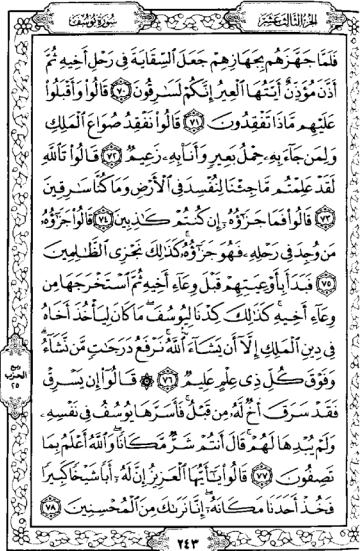 الجزء الثالث عشر
سورة يوسف
فَلَمَّا جَهَّزَهُم بِجَهَازِهِمْ جَعَلَ ٱلسِّقَايَةَ فِى رَحْلِ أَخِيهِ ثُمَّ
أَذَّنَ مُؤَذِّنٌ أَيَّتُهَا ٱلْعِيرُ إِنَّكُمْ لَسَٰرِقُونَ ٧٠ قَالُوا۟ وَأَقْبَلُوا۟
عَلَيْهِم مَّاذَا تَفْقِدُونَ ٧١ قَالُوا۟ نَفْقِدُ صُوَاعَ ٱلْمَلِكِ
وَلِمَن جَآءَ بِهِۦ حِمْلُ بَعِيرٍ وَأَنَا۠ بِهِۦ زَعِيمٌ ٧٢ قَالُوا۟ تَٱللَّهِ
لَقَدْ عَلِمْتُم مَّا جِئْنَا لِنُفْسِدَ فِى ٱلْأَرْضِ وَمَا كُنَّا سَٰرِقِينَ
٧٣ قَالُوا۟ فَمَا جَزَٰٓؤُهُۥٓ إِن كُنتُمْ كَٰذِبِينَ ٧٤ قَالُوا۟ جَزَٰٓؤُهُۥ
مَن وُجِدَ فِى رَحْلِهِۦ فَهُوَ جَزَٰٓؤُهُۥ كَذَٰلِكَ نَجْزِى ٱلظَّٰلِمِينَ
٧٥ فَبَدَأَ بِأَوْعِيَتِهِمْ قَبْلَ وِعَآءِ أَخِيهِ ثُمَّ ٱسْتَخْرَجَهَا مِن
وِعَآءِ أَخِيهِ كَذَٰلِكَ كِدْنَا لِيُوسُفَ مَا كَانَ لِيَأْخُذَ أَخَاهُ
فِى دِينِ ٱلْمَلِكِ إِلَّآ أَن يَشَآءَ ٱللَّهُ نَرْفَعُ دَرَجَٰتٍ مَّن نَّشَآءُ
وَفَوْقَ كُلِّ ذِى عِلْمٍ عَلِيمٌ ٧٦ ۞ قَالُوٓا۟ إِن يَسْرِقْ
فَقَدْ سَرَقَ أَخٌ لَّهُۥ مِن قَبْلُ فَأَسَرَّهَا يُوسُفُ فِى نَفْسِهِۦ
وَلَمْ يُبْدِهَا لَهُمْ قَالَ أَنتُمْ شَرٌّ مَّكَانًا وَٱللَّهُ أَعْلَمُ بِمَا
تَصِفُونَ ٧٧ قَالُوا۟ يَٰٓأَيُّهَا ٱلْعَزِيزُ إِنَّ لَهُۥٓ أَبًا شَيْخًا كَبِيرًا
فَخُذْ أَحَدَنَا مَكَانَهُۥٓ إِنَّا نَرَىٰكَ مِنَ ٱلْمُحْسِنِينَ ٧٨
ربع
الحزب
٢٥
٢٤٣